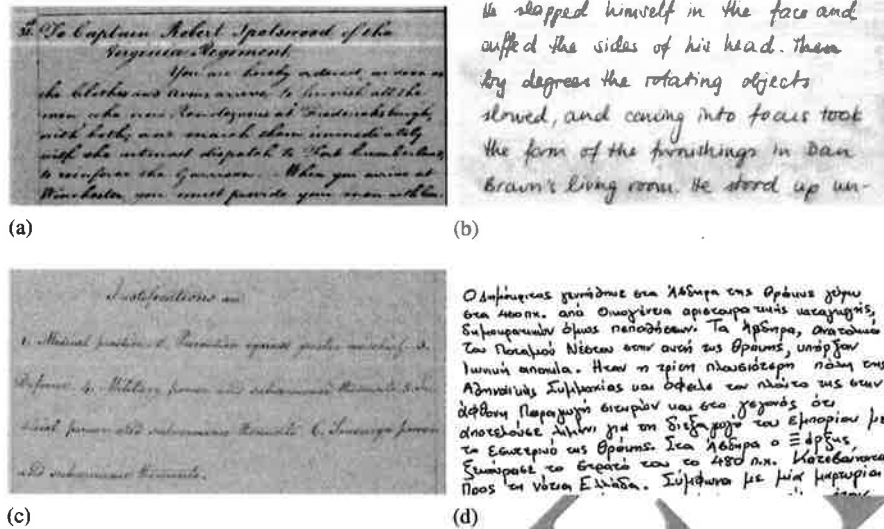 31. To Captain Robert Spotswood of the
Virginia Regiment.
You are hereby ordered, as soon as
the Clothes and Arms arrive, to furnish all the
men who now Rendezvous at Fredericksburgh,
with both; and march them immediately
with the utmost dispatch to Fort Cumberland,
to reinforce the Garrison. When you arrive at
Winchester you must provide your men with
(a)
He slapped himself in the face and
cuffed the sides of his head. Then
by degrees the rotating objects
slowed, and coming into focus took
the form of the furnishings in Dan
Brawn's living room. He stood up un-
(b)
Justifications are
1. Medical practice. 2. Prevention against greater mischief. 3.
Defence. 4. Military power and subservient thereunto. 5. Ju
dicial power and subservient thereunto. 6. Sovereign power
and subservient thereunto.
(c)
Ο Δημόκριτος γεννήθηκε στα Άβδηρα της Θράκης γύρω
στα 460 π.χ. από οικογένεια αριστοκρατικής καταγωγής,
δημοκρατικών όμως πεποιθήσεων. Τα Άβδηρα, ανατολικά
του Ποταμού Νέστου στην ακτή της Θράκης, υπήρξαν
Ιωνική αποικία. Ήταν η τρίτη πλουσιότερη πόλη της
Αθηναϊκής Συμμαχίας και όφειλε τον πλούτο της στην
άφθονη Παραγωγή σιτηρών και στο γεγονός ότι
αποτελούσε λιμάνι για τη διεξαγωγή του εμπορίου με
το εσωτερικό της Θράκης. Στα Άβδηρα ο Ξέρξης
ξεκούρασε το στρατό του το 480 π.χ. κατεβαίνοντας
Προς τη νότια Ελλάδα. Σύμφωνα με μία μαρτυρία
(d)